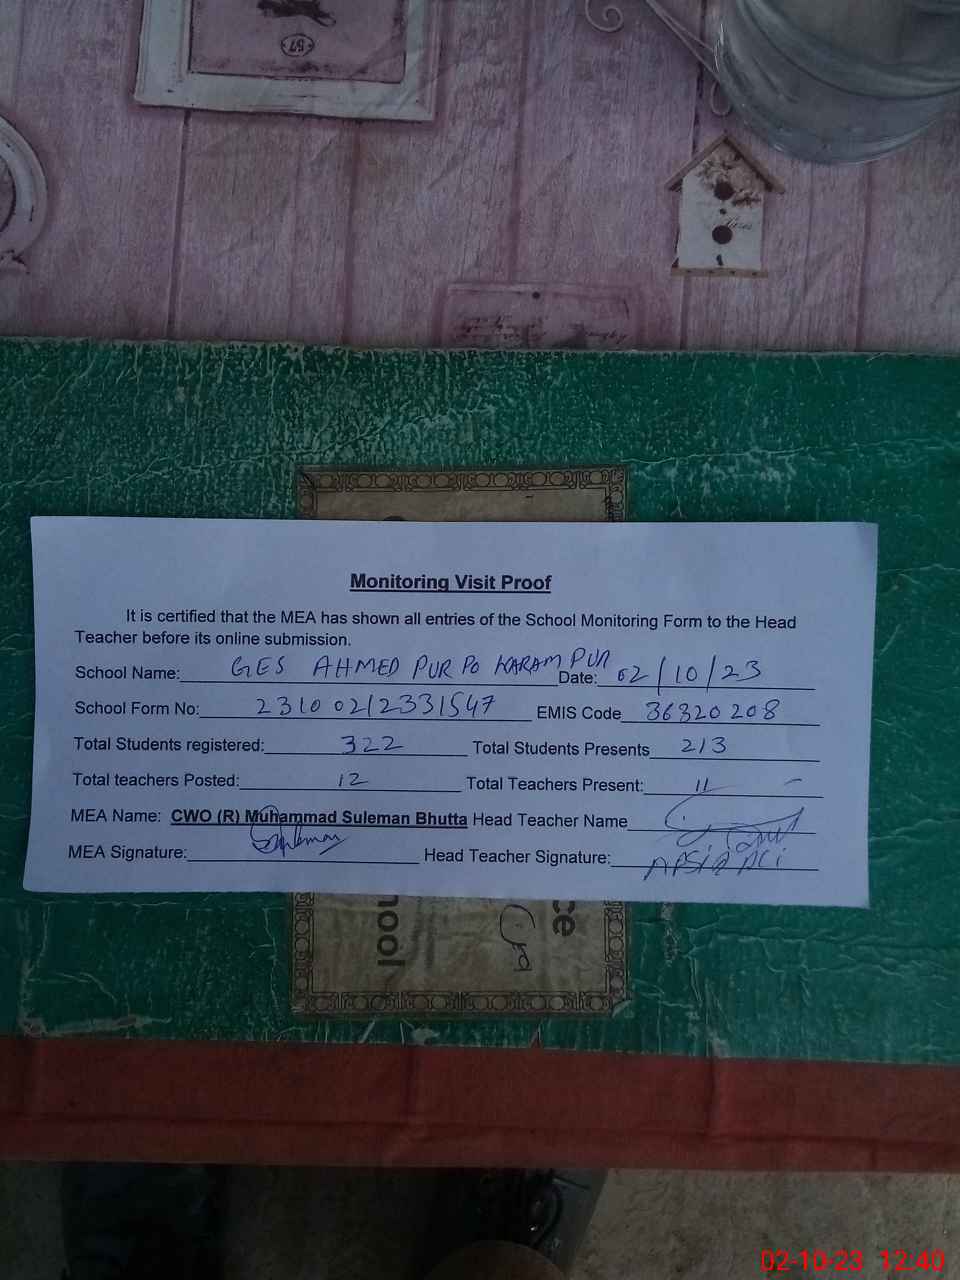 57
Monitoring Visit Proof
It is certified that the MEA has shown all entries of the School Monitoring Form to the Head
Teacher before its online submission.
School Name: GES AHMED PUR PO KARAM PUR Date: 02/10/23
School Form No: 231002/2331547 EMIS Code 36320208
Total Students registered: 322 Total Students Presents 213
Total teachers Posted: 12 Total Teachers Present: 11
MEA Name: CWO (R) Muhammad Suleman Bhutta Head Teacher Name
MEA Signature: Suleman Head Teacher Signature:
ce
hool
02-10-23 12:40